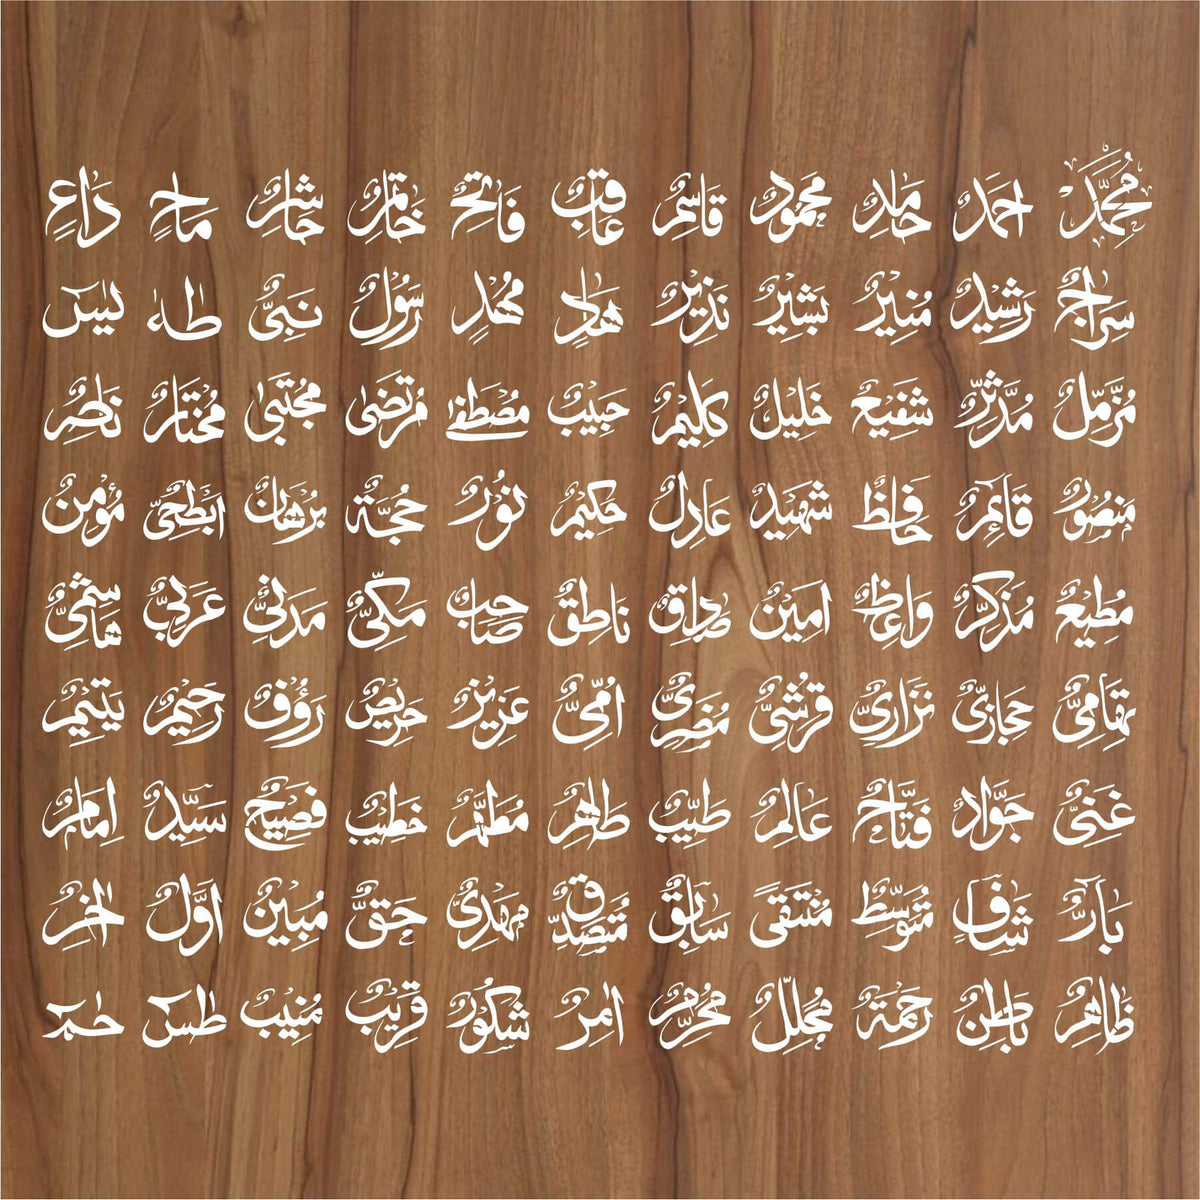 مُحَمَّدٌ اَحْمَدُ حَامِدٌ مَحْمُودٌ قَاسِمٌ عَاقِبٌ فَاتِحٌ خَاتِمٌ حَاشِرٌ مَاحٍ دَاعٍ
سِرَاجٌ رَشِيدٌ مُنِيرٌ بَشِيرٌ نَذِيرٌ هَادٍ مُهْدٍ رَسُولٌ نَبِيٌّ طٰهٰ يٰسٓ
مُزَّمِّلٌ مُدَّثِّرٌ شَفِيعٌ خَلِيلٌ كَلِيمٌ حَبِيبٌ مُصْطَفٰى مُرْتَضٰى مُجْتَبٰى مُخْتَارٌ نَاصِرٌ
مَنْصُورٌ قَائِمٌ حَافِظٌ شَهِيدٌ عَادِلٌ حَكِيمٌ نُورٌ حُجَّةٌ بُرْهَانٌ اَبْطَحِيٌّ مُؤْمِنٌ
مُطِيعٌ مُذَكِّرٌ وَاعِظٌ اَمِينٌ صَادِقٌ نَاطِقٌ صَاحِبٌ مَكِّيٌّ مَدَنِيٌّ عَرَبِيٌّ هَاشِمِيٌّ
تِهَامِيٌّ حِجَازِيٌّ نِزَارِيٌّ قُرَشِيٌّ مُضَرِيٌّ اُمِّيٌّ عَزِيزٌ حَرِيصٌ رَؤُفٌ رَحِيمٌ يَتِيمٌ
غَنِيٌّ جَوَّادٌ فَتَّاحٌ عَالِمٌ طَيِّبٌ طَاهِرٌ مُطَهَّرٌ خَطِيبٌ فَصِيحٌ سَيِّدٌ اِمَامٌ
بَارٌّ شَافٍ مُتَوَسِّطٌ مُتَّقٍ سَابِقٌ مُتَصَدِّقٌ مَهْدِيٌّ حَقٌّ مُبِينٌ اَوَّلٌ اٰخِرٌ
ظَاهِرٌ بَاطِنٌ رَحْمَةٌ مُحَلِّلٌ مُحَرِّمٌ اٰمِرٌ شَكُورٌ قَرِيبٌ مُنِيبٌ طٰسٓ حٰمٓ